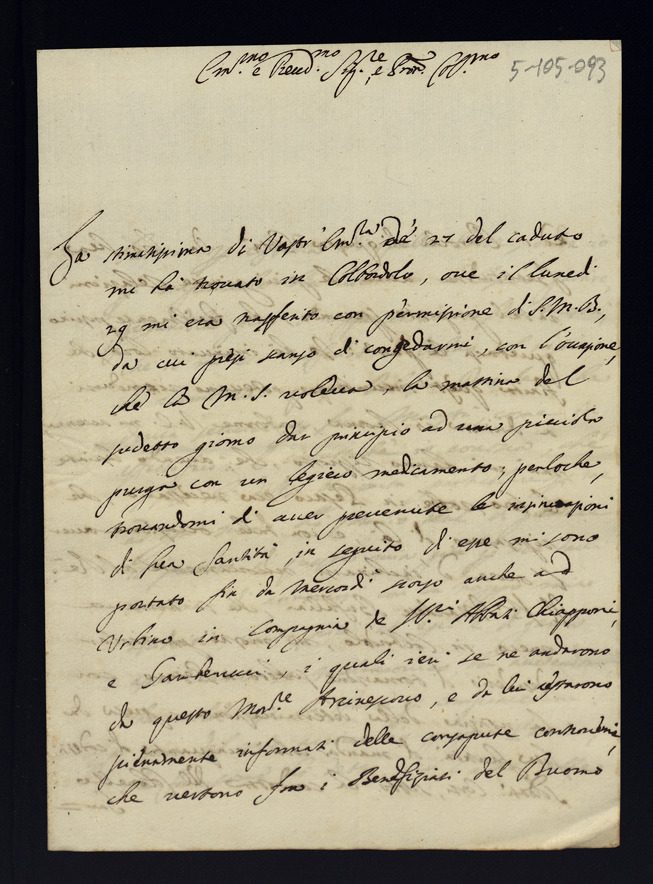 Em.mo e Reud.mo Sig.re e Pron. Col.mo
5-105-093
La stimatissima di Vostr' Em.za de' 27 del caduto
mi hà trovato in Colbordolo, ove il lunedì
29 mi era trasferito con permissione di S. M. B.,
da cui presi stanzo di congedarmi, con l'occasione,
che la M. S. voleva, la mattina del
sudetto giorno dar principio ad una picciola
purga con un legiero medicamento; perloche,
trovandomi di aver prevenute le insinuazioni
di sua Santità, in seguito di esse mi sono
portato fin da Mercordì scorso anche ad
Urbino in compagnia de SS.ri Abbati Chiapponi,
e Gamberucci, i quali ieri se ne andarono
da questo Mons.re Arcivescovo, e da lui restarono
pienamente informati delle consapute controversie,
che vertono fra i Beneficiati del Duomo